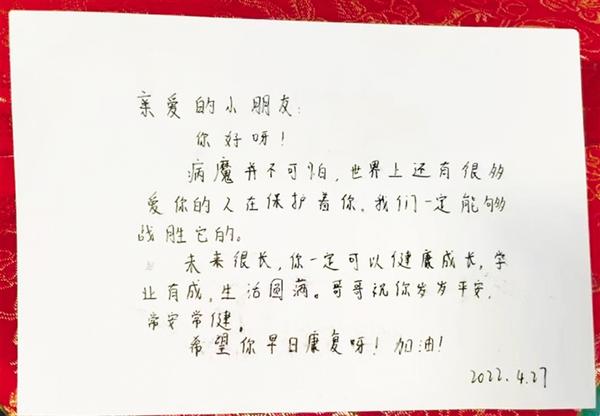 亲爱的小朋友：
你好呀！
病魔并不可怕，世界上还有很多
爱你的人在保护着你，我们一定能够
战胜它的。
未来很长，你一定可以健康成长，学
业有成，生活圆满。哥哥祝你岁岁平安，
常安常健。
希望你早日康复呀！加油！
2022.4.27